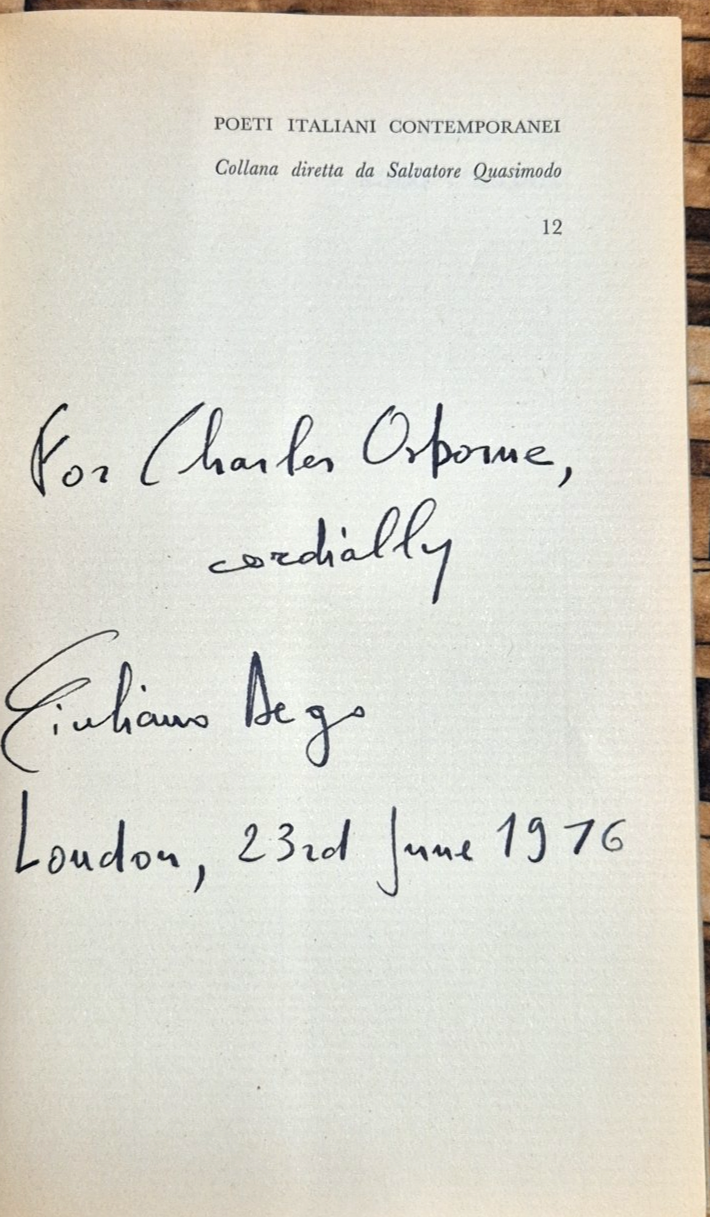 POETI ITALIANI CONTEMPORANEI
Collana diretta da Salvatore Quasimodo
12
For Charles Osborne,
cordially
Giuliano Dego
London, 23rd June 1976